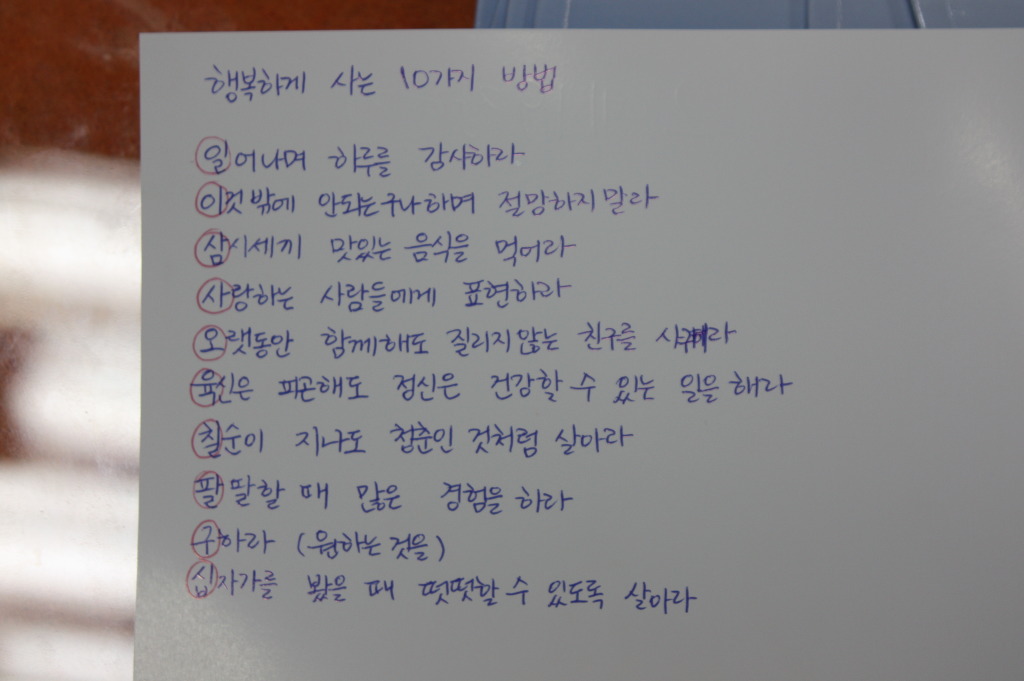 행복하게 사는 10가지 방법
일어나며 하루를 감사하라
이것밖에 안되는구나하며 절망하지말라
삼시세끼 맛있는 음식을 먹어라
사랑하는 사람들에게 표현하라
오랫동안 함께해도 질리지않는 친구를 사귀라
육신은 피곤해도 정신은 건강할 수 있는 일을 해라
칠순이 지나도 청춘인 것처럼 살아라
팔딸할 때 많은 경험을 하라
구하라 (원하는 것을)
십자가를 봤을 때 떳떳할 수 있도록 살아라